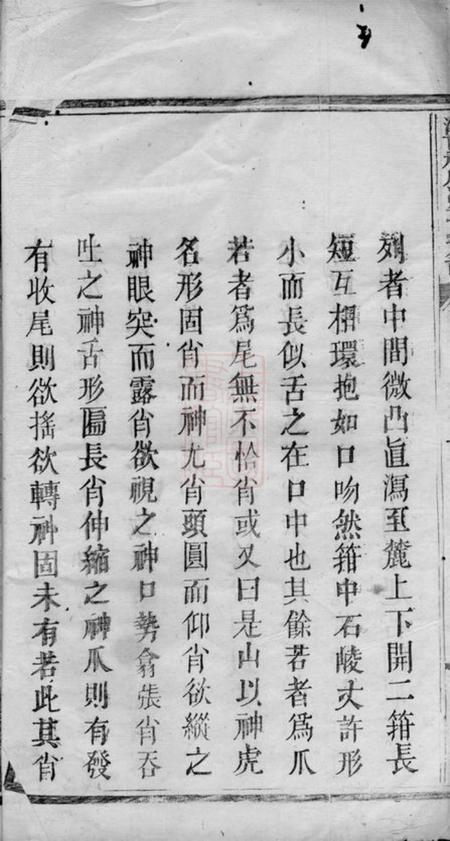 列者中間微凸直瀉至麓上下開二箝長
短互相環抱如口吻然箝中石崚丈許形
小而長似舌之在口中也其餘若者為爪
若者為尾無不恰肖或又曰是山以神虎
名形固肖而神尤肖頭圓而仰肖欲縱之
神眼突而露肖欲視之神口勢翕張肖吞
吐之神舌形匾長肖伸縮之神爪則有發
有收尾則欲搖欲轉神固未有若此其肖